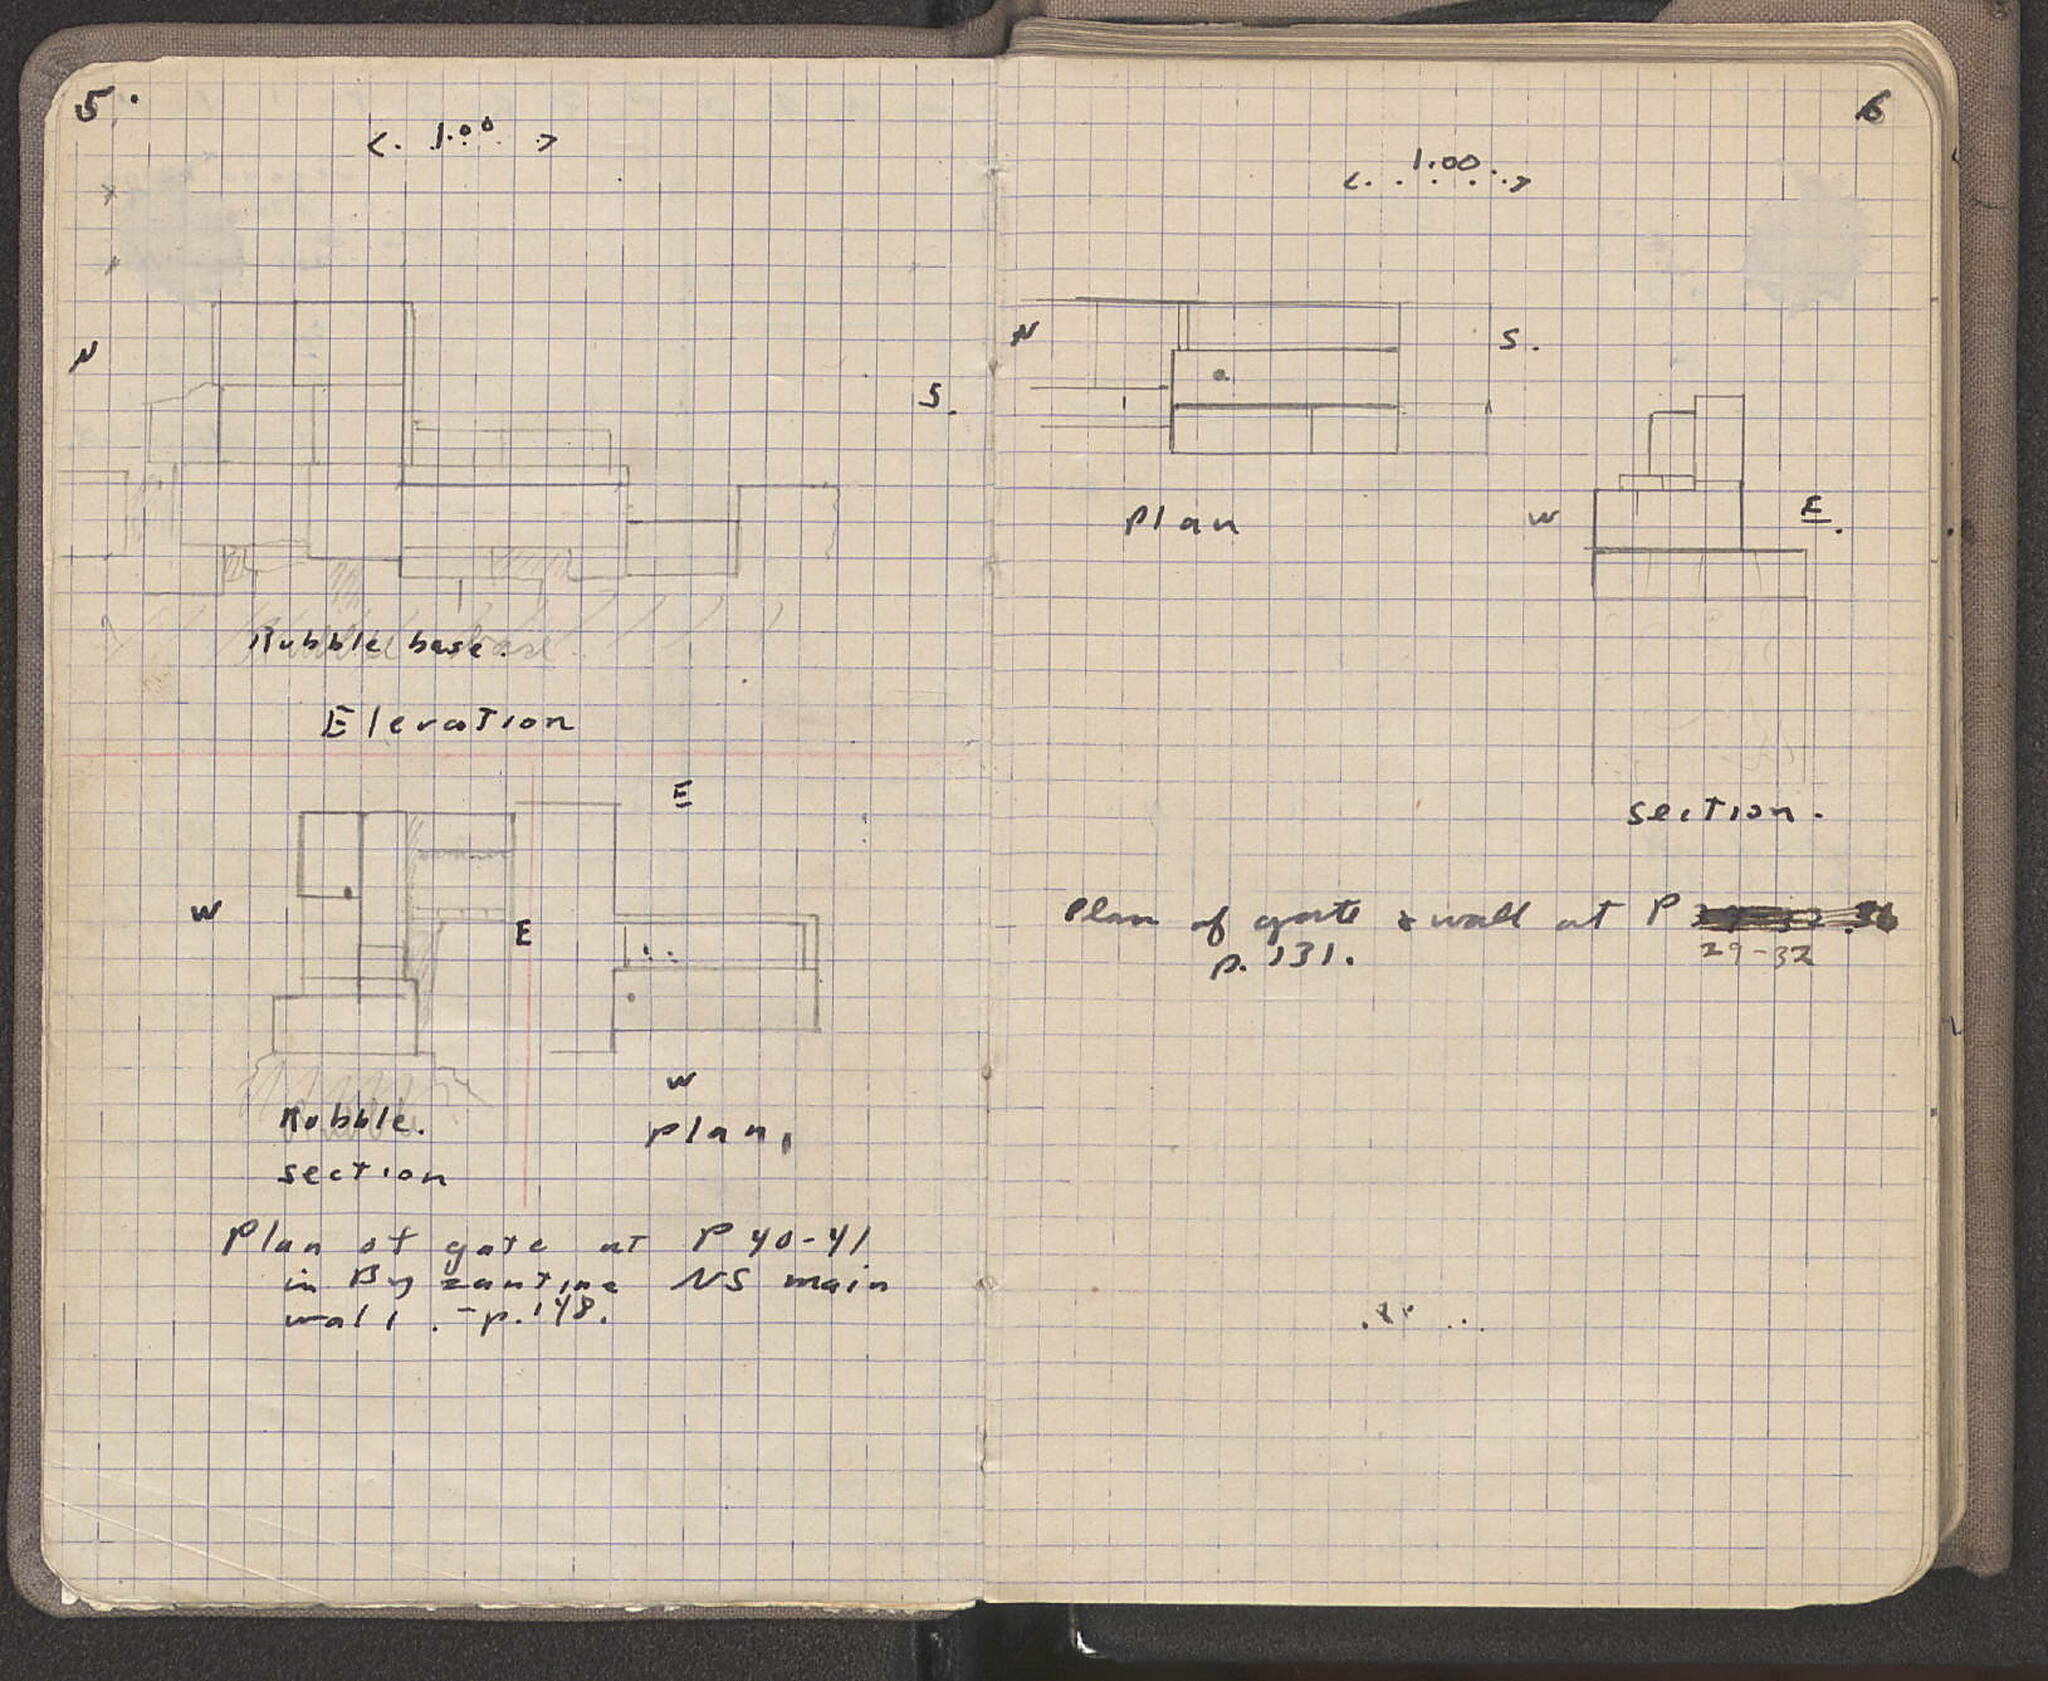 5.
<. 1.00 >
N
S.
Rubble base.
Elevation
E
W
E
W
Rubble.
plan,
section
Plan of gate at P 40-41
in Byzantine NS main
wall. - p. 148.
6
<. 1.00 >
N
S.
Plan
W
E.
section.
Plan of gate & wall at P
29-32
p. 131.